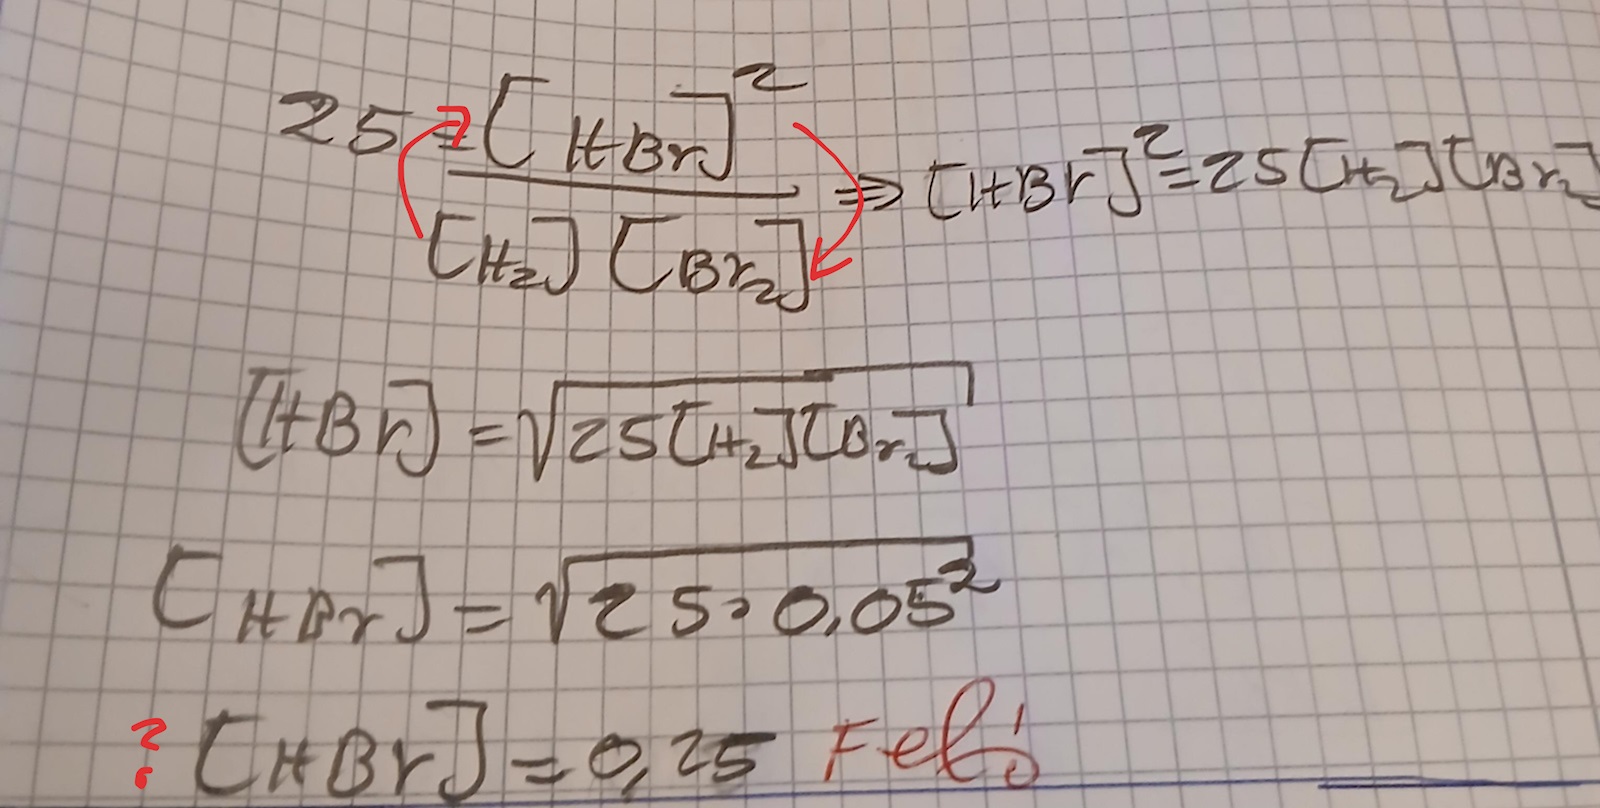 25 = [HBr]² / [H₂] [Br₂] ⇒ [HBr]² = 25[H₂][Br₂]
[HBr] = √25[H₂][Br₂]
[HBr] = √25・0,05²
? [HBr] = 0,25 Fel!